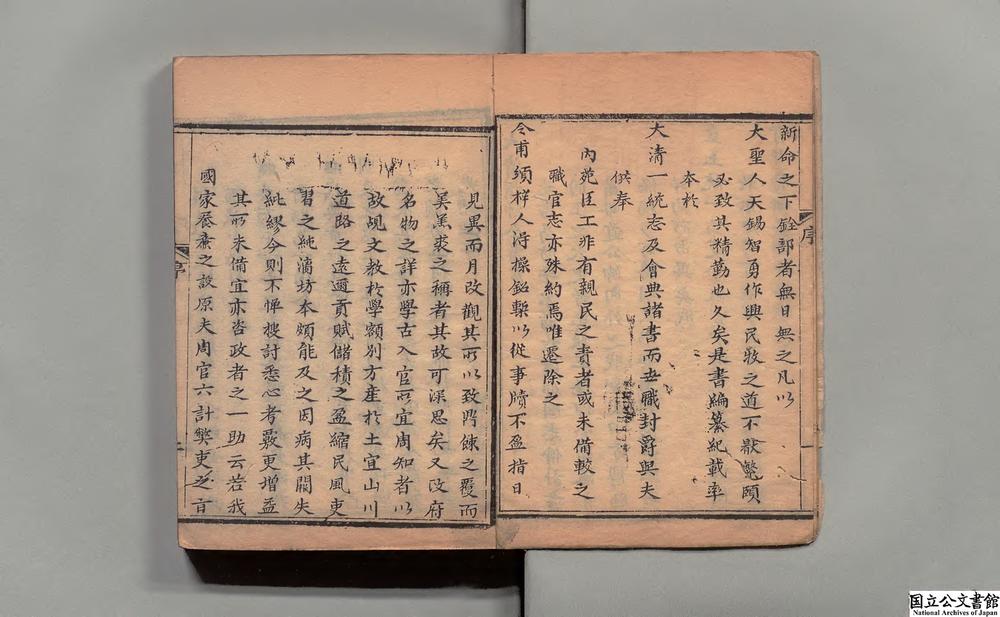 新命之下銓部者無日無之凡以
大聖人天錫智勇作興民牧之道不厭鄭頤
必致其精勤也久矣是書編纂紀載率
本於
大清一統志及會典諸書而世職封爵與夫
供奉
內苑臣工非有親民之責者或未備較之
職官志亦殊約焉唯遷除之
令甫頒梓人浔操鉛槧以從事牘不盈指日
見異而月改觀其所以致鼎餗之覆而
羔裘之稱者其故可深思矣又政府
名物之詳亦學古入官所宜周知者以
故覘文教於學額別方產於土宜山川
道路之遠邇貢賦儲積之盈縮民風吏
習之純漓坊本頗能及之因病其闕失
紕繆今則不憚搜討悉心考覈更增益
其所未備宜亦咨政者之一助云若我
國家養廉之設原夫周官六計弊吏之言
序
序
一
一
国立公文書館
National Archives of Japan